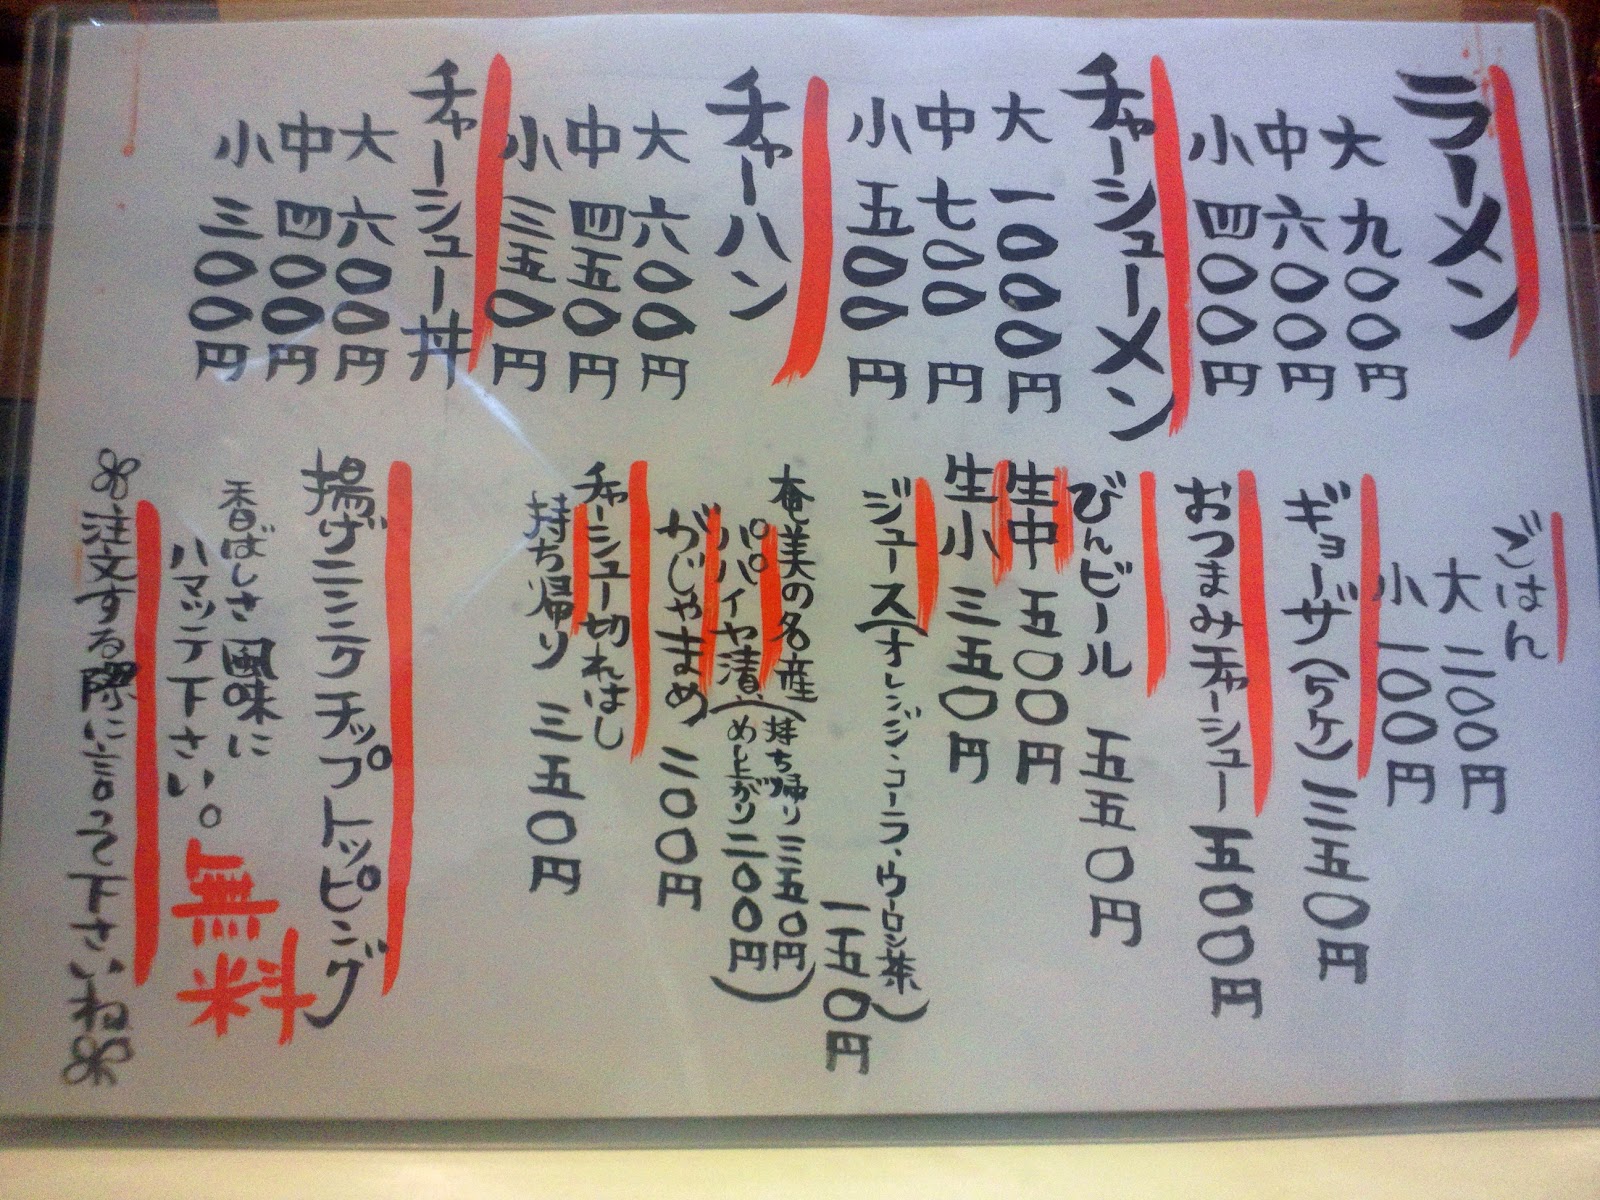 ラーメン
大 九〇〇円
中 六〇〇円
小 四〇〇円
チャーシューメン
大 一〇〇〇円
中 七〇〇円
小 五〇〇円
チャーハン
大 六〇〇円
中 四五〇円
小 三五〇円
チャーシュー丼
大 六〇〇円
中 四〇〇円
小 三〇〇円
ごはん
大 二〇〇円
小 一〇〇円
ギョーザ(5ケ)三五〇円
おつまみチャーシュー 五〇〇円
びんビール 五五〇円
生中 五〇〇円
生小 三五〇円
ジュース(オレンジ・コーラ・ウーロン茶)
一五〇円
奄美の名産
パパイヤ漬(持ち帰り 三五〇円
めし上がり 二〇〇円)
がじゃまめ 二〇〇円
チャーシュー切れはし
持ち帰り 三五〇円
揚げニンニクチップトッピング
香ばしさ風味に
ハマッテ下さい。無料
注文する際に言って下さいね